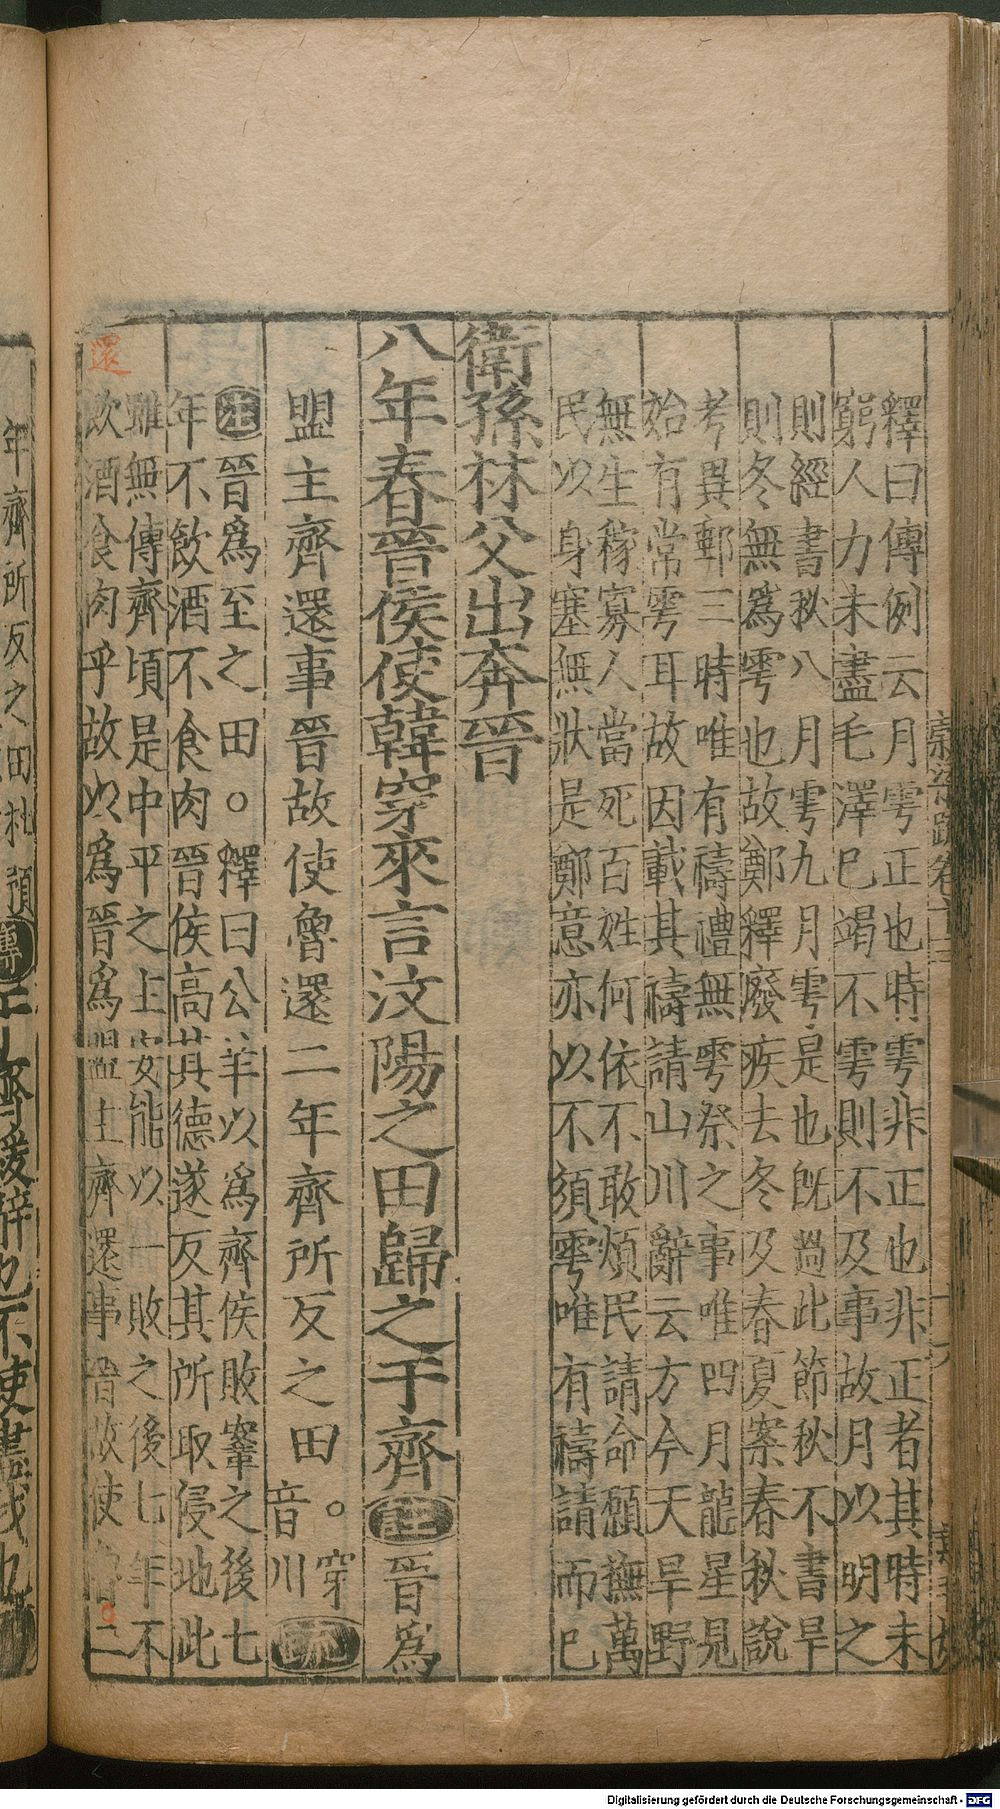 釋曰傳例云月雩正也時雩非正也非正者其時未
窮人力未盡毛澤巳竭不雩則不及事故月以明之
則經書秋八月雩九月雩是也旣過此節秋不書旱
則冬無爲雩也故鄭釋廢疾去冬及春夏案春秋說
考異郵三時唯有禱禮無雩祭之事唯四月龍星見
始有常雩耳故因載其禱請山川辭云方今天旱野
無生稼寡人當死百姓何依不敢煩民請命願撫萬
民以身塞無狀是鄭意亦以不須雩唯有禱請而巳
衛孫林父出奔晉
八年春晉侯使韓穿來言汶陽之田歸之于齊註晉爲
盟主齊還事晉故使魯還二年齊所反之田。穿音川疏
註晉爲至之田。釋曰公羊以爲齊侯敗鞌之後七
年不飲酒不食肉晉侯高其德遂反其所取侵地此
雖無傳齊頃是中平之主安能以一敗之後七年不
飲酒食肉乎故以爲晉爲盟主齊還事晉故使魯二
還
年齊所反之田杜預傳于齊緩辭也不使盡我也
Digitalisierung gefördert durch die Deutsche Forschungsgemeinschaft - DFG